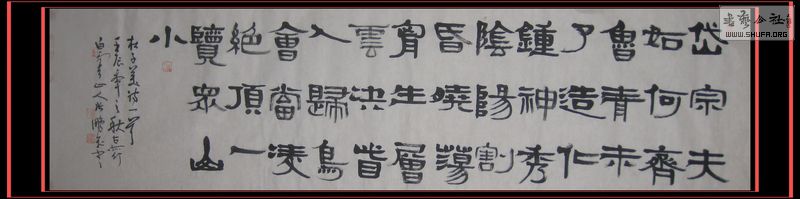 岱宗夫
如何齊
魯青未
了造化
鍾神秀
陰陽割
昏曉蕩
胷生層
雲決眥
入歸鳥
會當凌
絕頂一
覽眾山
小
杜子美詩一首
壬辰年之秋
白雲青山人
WWW.SHUFA.ORG